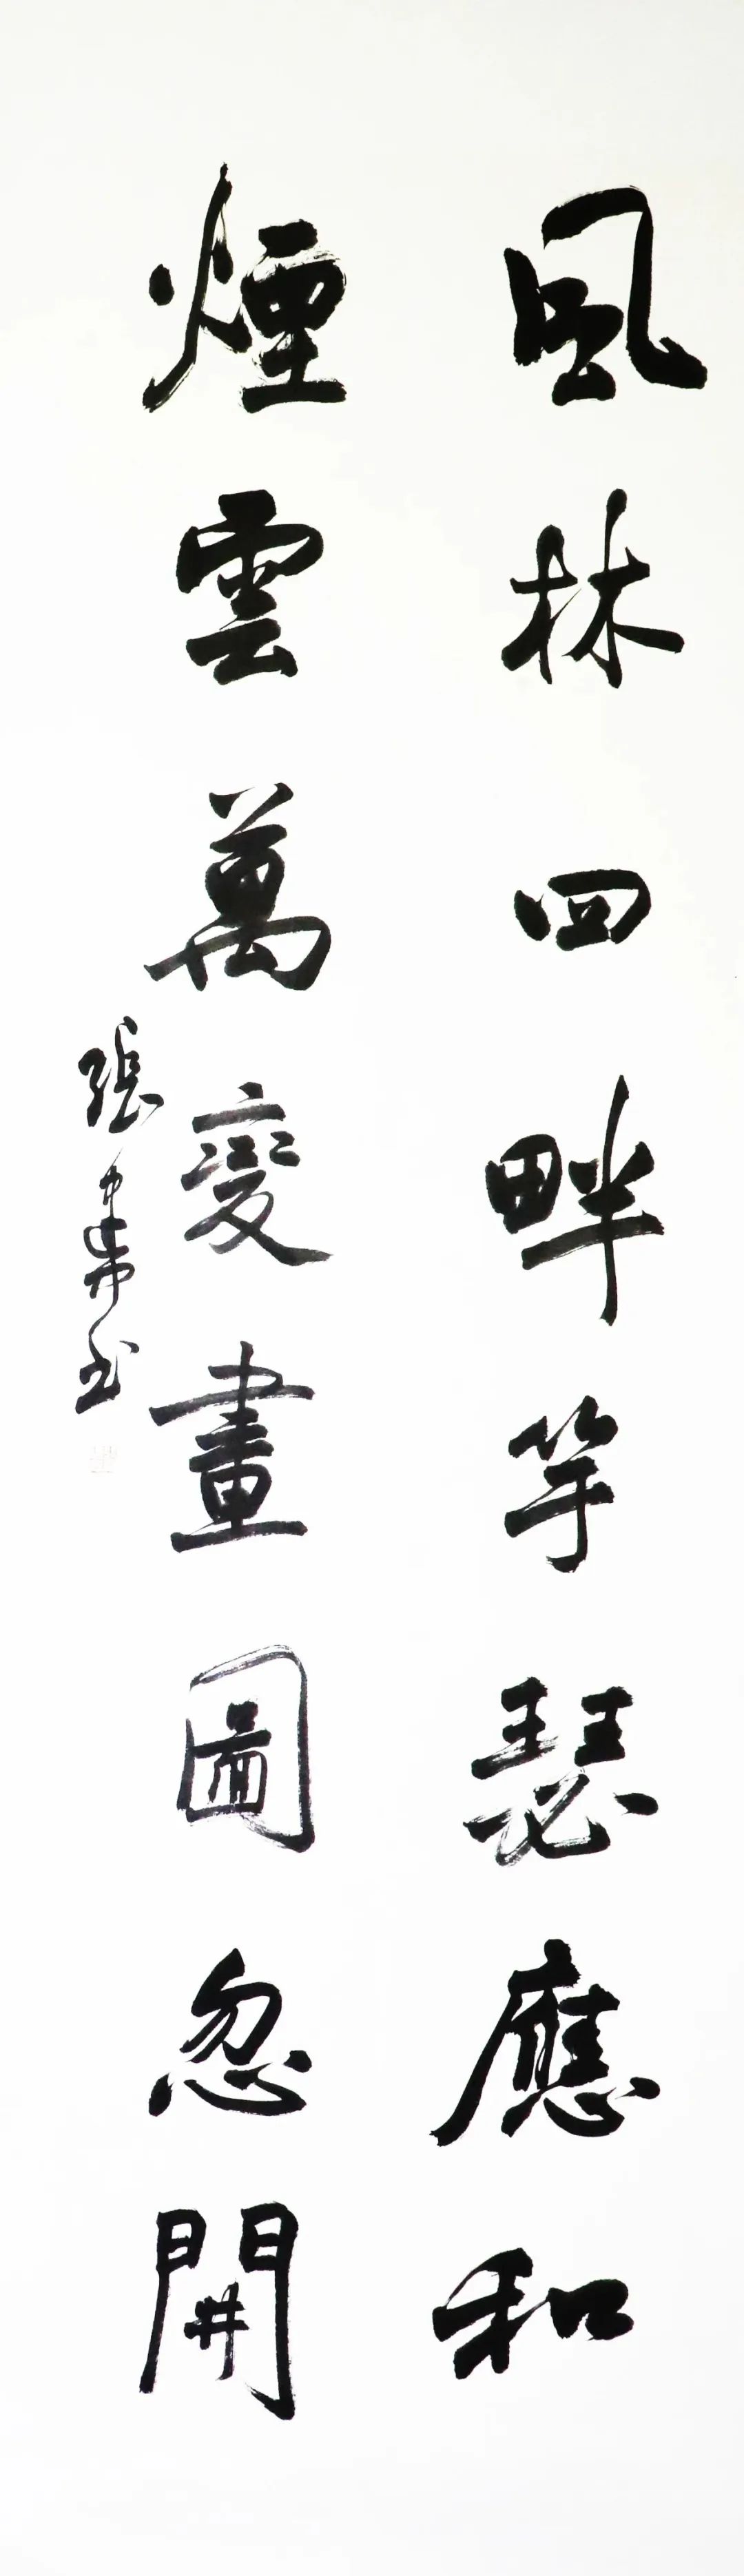 風林四畔竽瑟應和
煙雲萬變畫圖忽開
張書